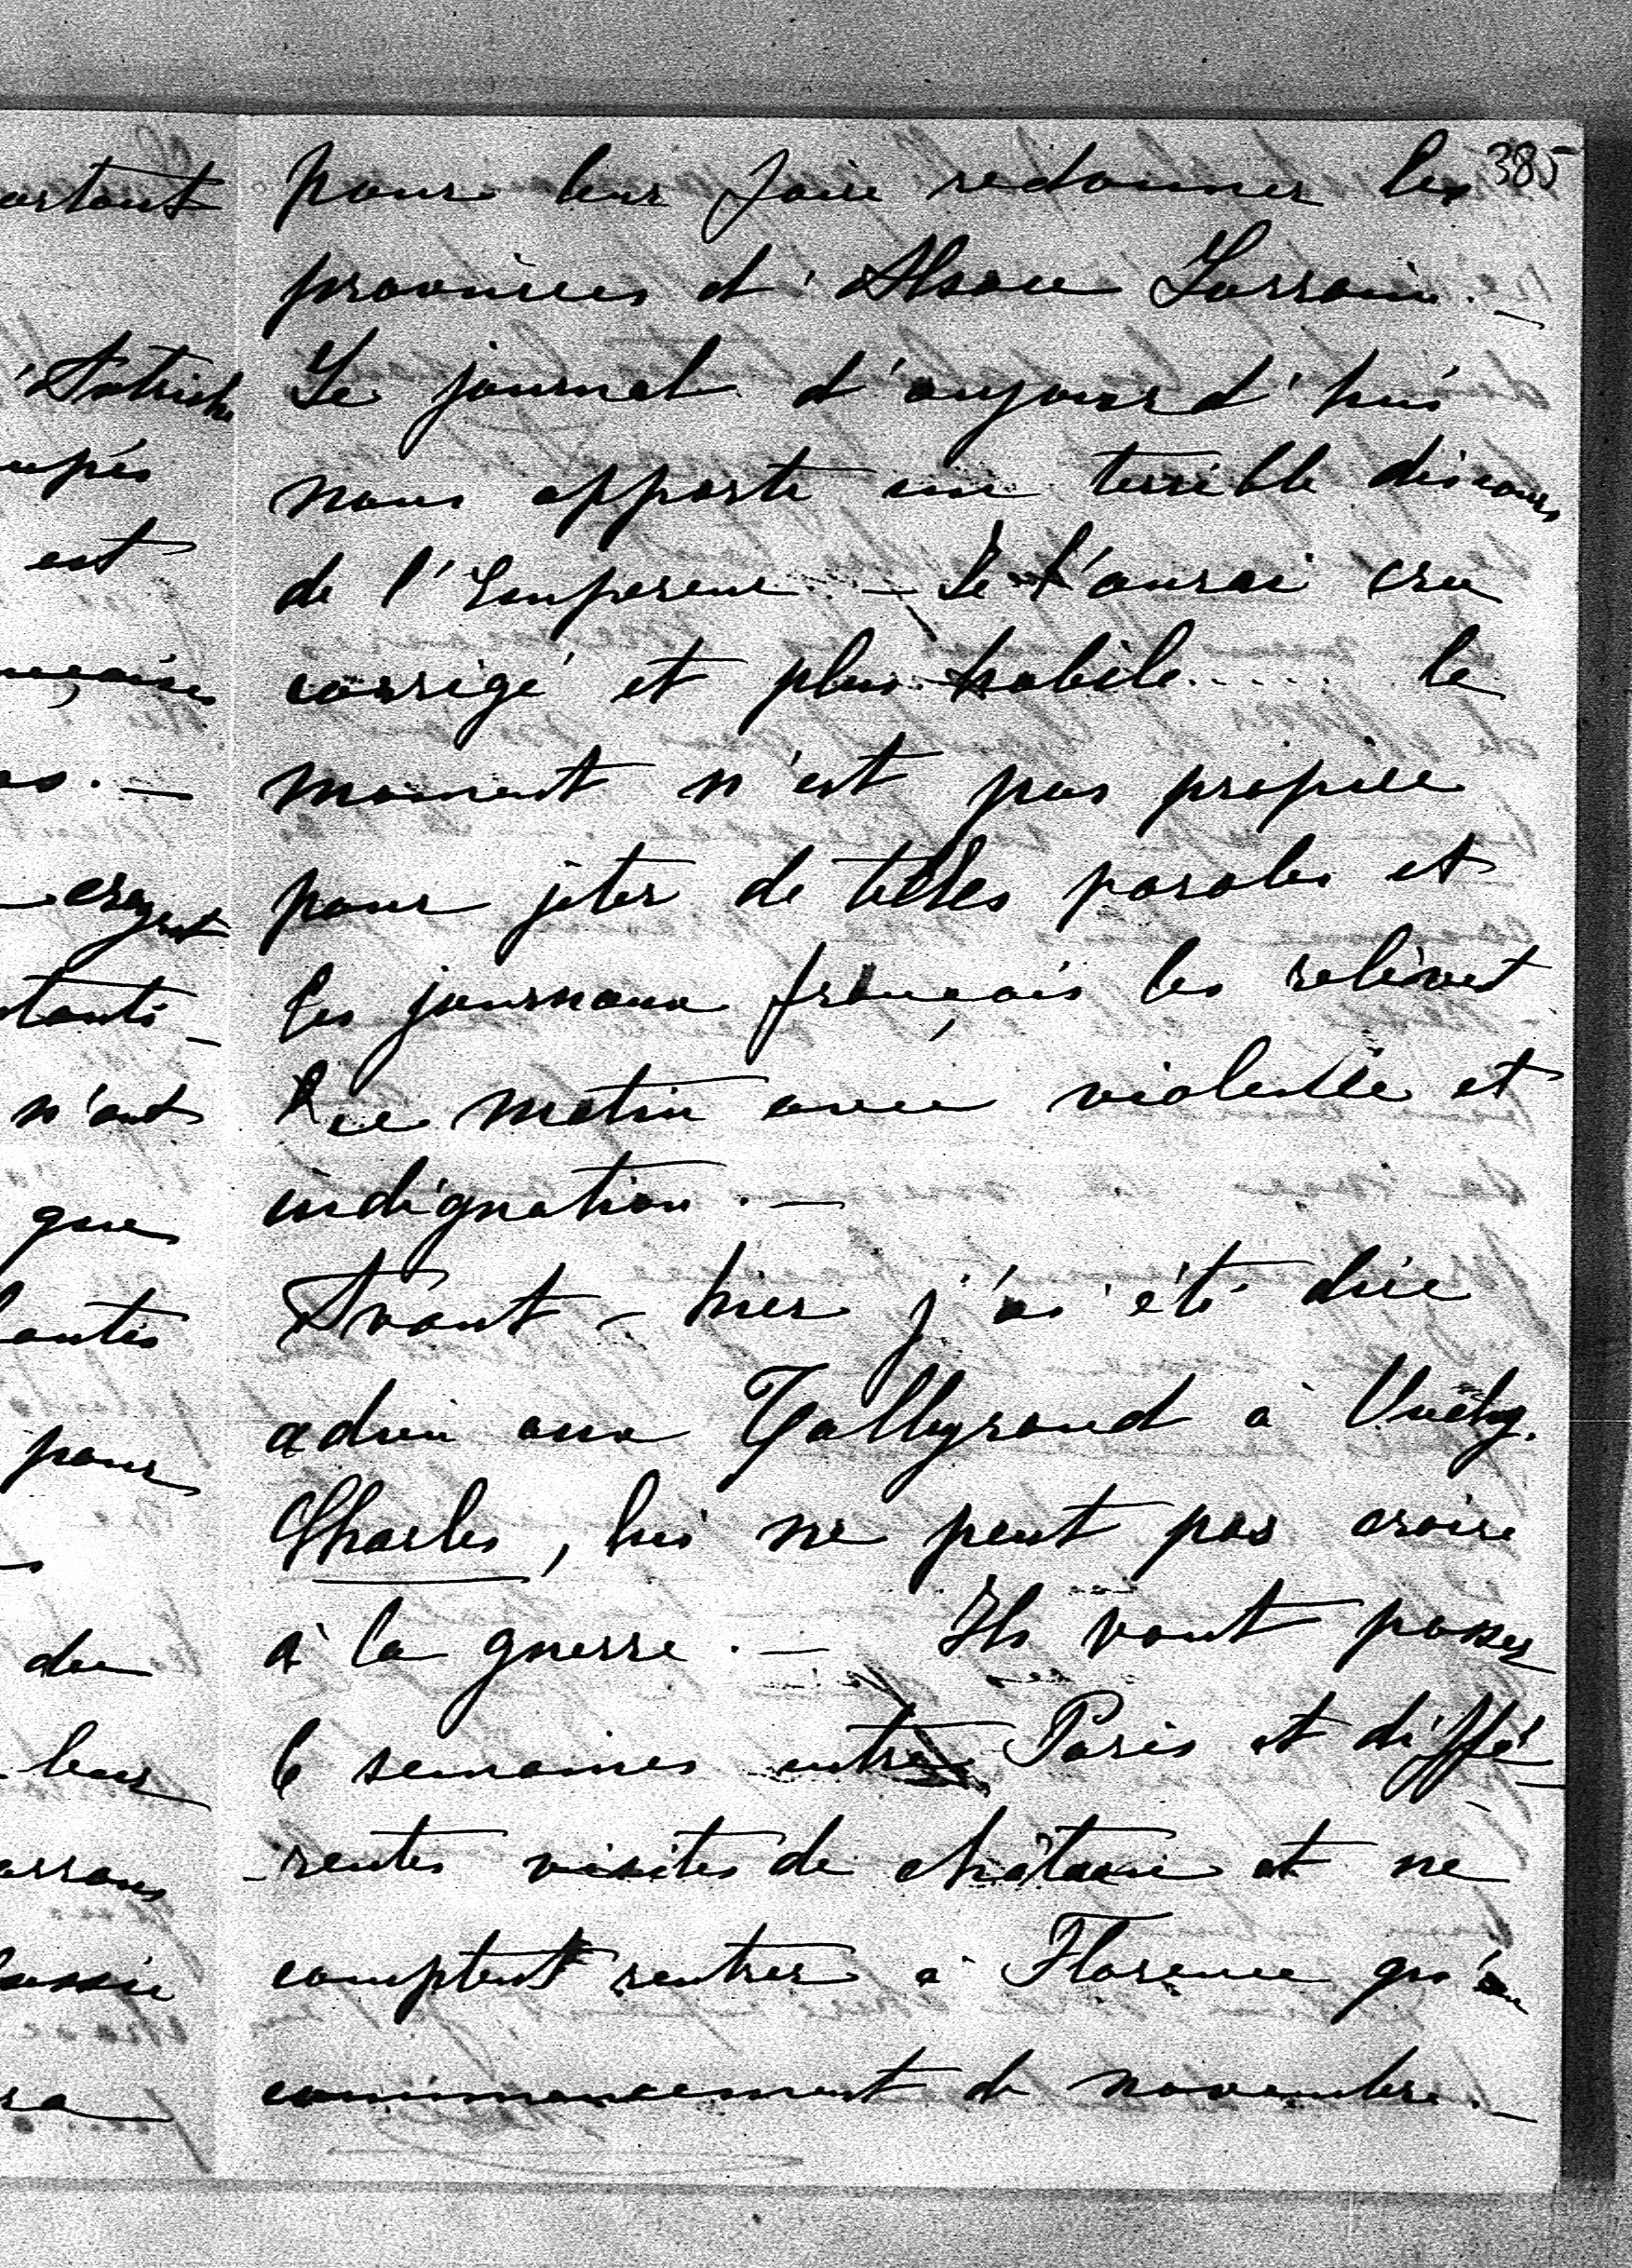 385
pour leur faire redonner les
provinces d'Alsace Lorraine. —
Le journal d'aujourd'hui
nous apporte un terrible discours
de l'Empereur — Je l'aurai cru
corrigé et plus habile..... le
moment n'est pas propice
pour jeter de telles paroles et
les journaux français les relèvent
ce matin avec violence et
indignation. —
Avant-hier j'ai été dire
adieu aux Talleyrand à Ouchy.
Charles, lui ne peut pas croire
à la guerre. — Ils vont passer
6 semaines entre Paris et diffé-
-rentes visites de château et ne
comptent rentrer à Florence qu'au
commencement de novembre. —
Autriche
est
n'ont
que
pour
du
leur